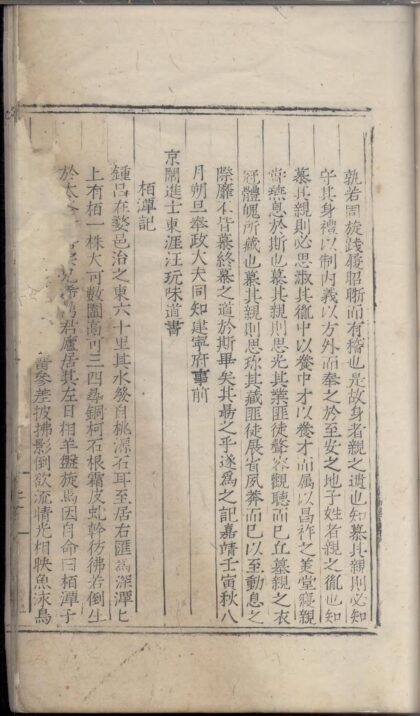 孰若周旋踐履昭晣而有稽也是故身者親之遺也知慕其親則必知
守其身禮以制內義以方外而奉之於至安之地子姓者親之胤也知
慕其親則必思淑其胤中以養中才以養才而屬以昌祚之美堂寢親
常燕息於斯也慕其親則思光其業匪徒聲容觀聽而已丘墓親之衣
冠體魄所藏也慕其親則思珎其藏匪徒展省夙莽而已以至動息之
際靡不皆慕終慕之道於斯畢矣其勗之乎遂為之記嘉靖壬寅秋八
月朔旦奉政大夫同知建寧府事前
京闈進士東涯汪玩味道書
栢潭記
鍾呂在婺邑治之東六十里其水發自桃源石耳至居右匯為深潭匕
上有栢一株大可數圍高可三四尋銅柯石根霜皮虬幹彷彿若倒生
於太 君廬居其左日相羊盤旋焉因自命曰栢潭子
參差披拂影倒欲流情光相映魚沫鳥